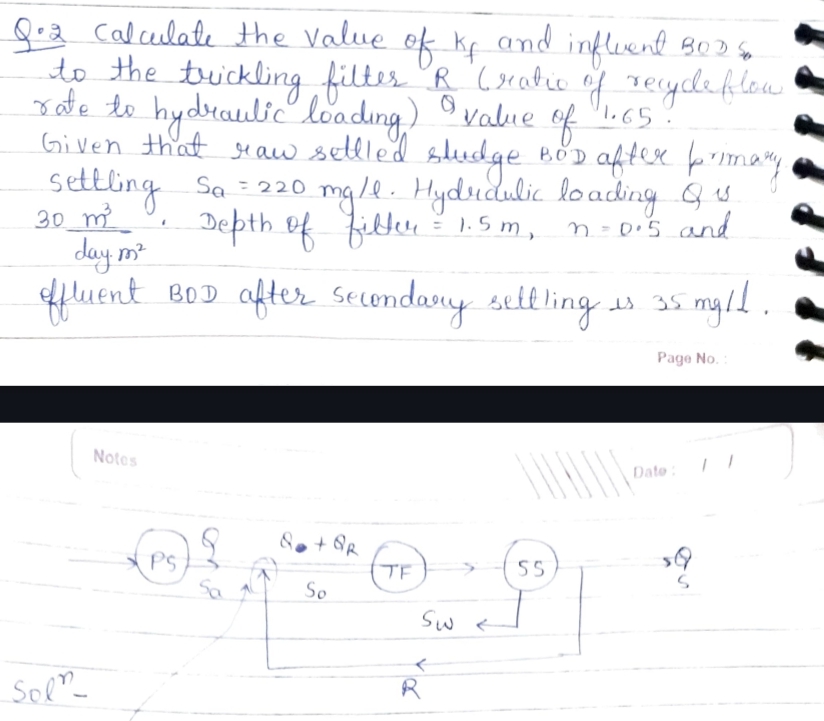 Q.2 Calculate the value of Kf and influent BOD So
to the trickling filter R (ratio of recycle flow
rate to hydraulic loading) value of 1.65.
Given that raw settled sludge BOD after primary
settling Sa = 220 mg/l. Hydraulic loading Q is
30 m³/day.m². Depth of filter = 1.5 m, n = 0.5 and
effluent BOD after secondary settling is 35 mg/l.
Page No. :
Notes
Date : / /
PS Q Sa Qo + QR So TF SS Q S
Sw
R
Solⁿ-